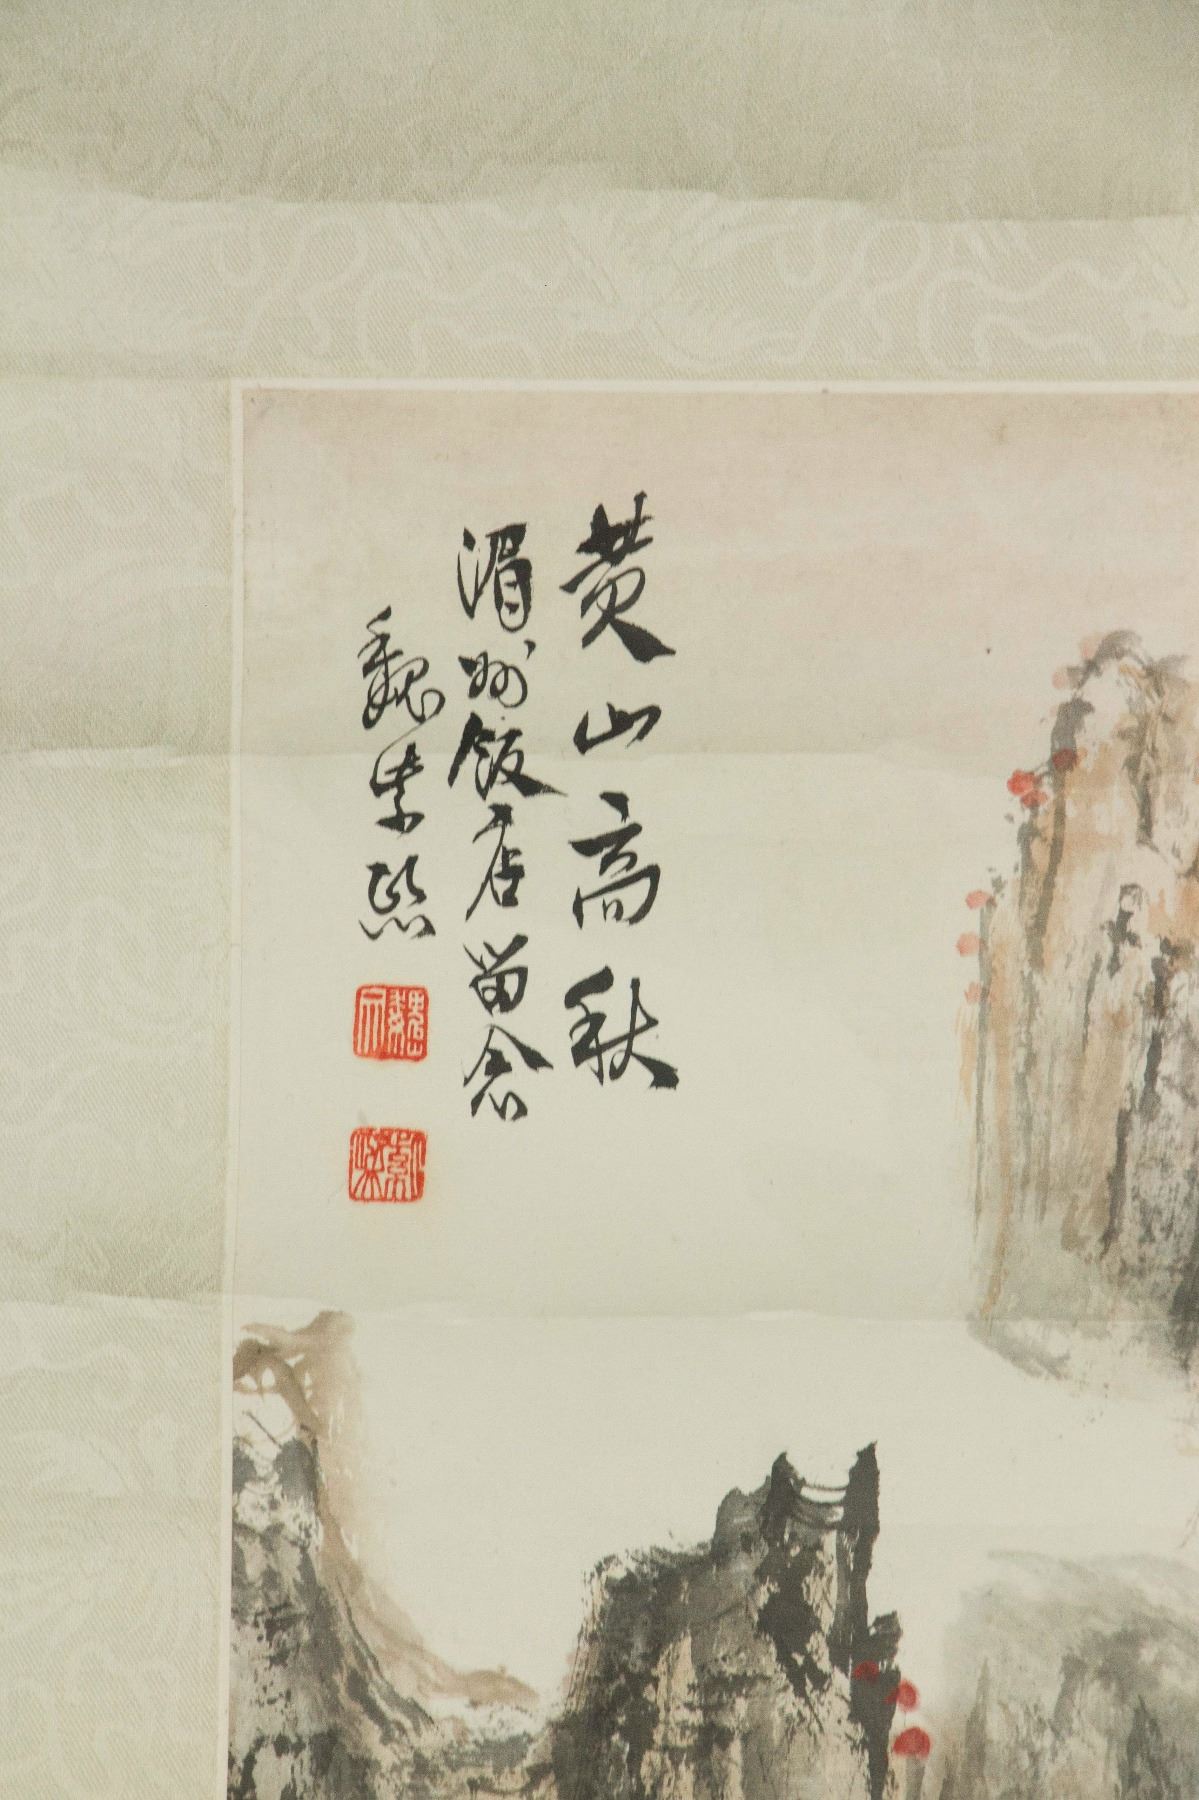 黄山高秋
湄州饭店留念
魏紫熙